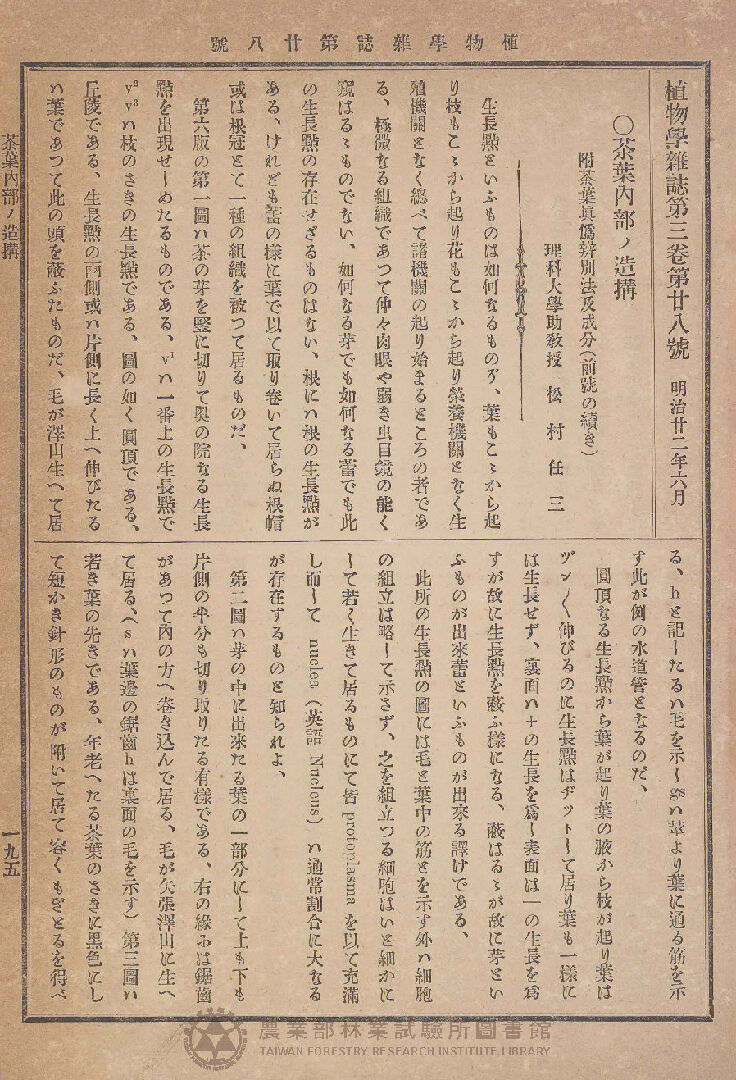 植物學雜誌第廿八號
植物學雜誌第三卷第廿八號　明治廿二年六月
〇茶葉內部ノ造搆
附茶葉眞僞辨別法及成分(前號の續き)
理科大學助敎授　松村任三
生長點といふものは如何なるものヲ、葉もこゝから起
り枝もこゝから起り花もこゝから起り榮養機關となく生
殖機關となく總べて諸機關の起り始まるところの者であ
る、極微なる組織であつて仲々肉眼や弱き虫目鏡の能く
窺はるゝものでない、如何なる芽でも如何なる蕾でも此
の生長點の存在せざるものはない、根にハ根の生長點が
ある、けれども蕾の樣に葉で以て取り卷いて居らぬ根帽
或は根冠とて一種の組織を被つて居るものだ、
第六版の第一圖ハ茶の芽を竪に切りて奧の院なる生長
點を出現せしめたるものである、v¹ハ一番上の生長點で
v² v³ハ枝のさきの生長點である、圖の如く圓頂である、
丘陵である、生長點の兩側或ハ片側に長く上へ伸びたる
ハ葉であつて此の頭を蔽ふたものだ、毛が澤山生へて居
る、hと記したるハ毛を示しgsハ莖より葉に通る筋を示
す此が例の水道管となるのだ、
圓頂なる生長點から葉が起り葉の腋から枝が起り葉は
ヅン〱伸びるのに生長點はヂットして居り葉も一樣に
は生長せず、裏面ハ十の生長を爲し表面は一の生長を爲
すが故に生長點を蔽ふ樣になる、蔽はるゝが故に芽とい
ふものが出來蕾といふものが出來る譯けである、
此所の生長點の圖には毛と葉中の筋とを示す外ハ細胞
の組立は略して示さず、之を組立つる細胞はいと細かに
して若く生きて居るものにて皆protoplasmaを以て充滿
し而して nuclea (英語 Nucleus) ハ通常割合に大なる
が存在するものと知られよ、
第二圖ハ芽の中に出來たる葉の一部分にして上も下も
片側の半分も切り取りたる有樣である、右の緣ふは鋸齒
があつて內の方へ卷き込んで居る、毛が矢張澤山に生へ
て居る、(sハ葉邊の鋸齒hは裏面の毛を示す) 第三圖ハ
若き葉の先きである、年老へたる茶葉のさきに黑色にし
て短かき針形のものが附いて居て容くもぎとるを得べ
茶葉內部ノ造搆
一九五
農業部林業試驗所圖書館
TAIWAN FORESTRY RESEARCH INSTITUTE LIBRARY